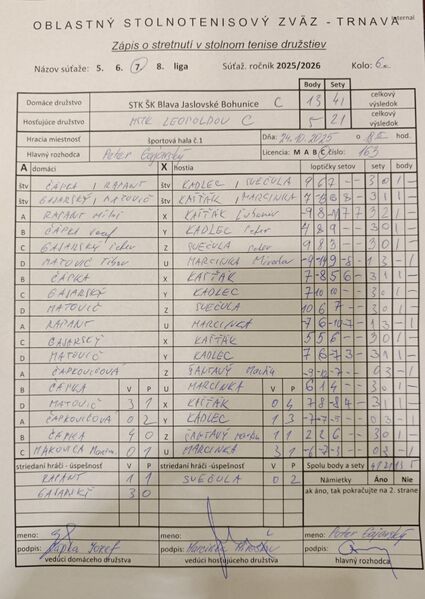 Internal
OBLASTNÝ STOLNOTENISOVÝ ZVÄZ - TRNAVA
Zápis o stretnutí v stolnom tenise družstiev
Názov súťaže: 5. 6. 7. 8. liga Súťaž. ročník 2025/2026 Kolo: 6.
Body Sety
Domáce družstvo STK ŠK Blava Jaslovské Bohunice C 13 41 celkový výsledok
Hosťujúce družstvo MSTK LEOPOLDOV C 5 21 celkový výsledok
Hracia miestnosť športová hala č.1 Dňa: 24.10.2025 o hod.
Hlavný rozhodca Peter Gajarský Licencia: M A B C číslo: 163
A domáci X hostia loptičky setov sety body
štv ČAPKA / RAPANT štv KADLEC / SVEČULA 9 6 7 - - 3 0 1 -
štv GAJARSKÝ / MATOVIČ štv KAŠŤÁK / MARCINKA 3 1 1 -
A RAPANT X KAŠŤÁK 3 2 1 -
B ČAPKA Jozef Y KADLEC Peter 4 8 9 - - 3 0 1 -
C GAJARSKÝ Peter Z SVEČULA Peter 9 8 3 - - 3 0 1 -
D MATOVIČ Tibor U MARCINKA Miroslav 1 3 - 1
B ČAPKA X KAŠŤÁK 7 -8 5 6 - 3 1 1 -
C GAJARSKÝ Y KADLEC 7 10 10 - - 3 0 1 -
D MATOVIČ Z SVEČULA 10 6 7 - - 3 0 1 -
A RAPANT U MARCINKA -7 6 -10 -7 - 1 3 - 1
C GAJARSKÝ X KAŠŤÁK 5 5 6 - - 3 0 1 -
D MATOVIČ Y KADLEC 7 6 -7 3 - 3 1 1 -
A ČAPKOVIČOVÁ Z 0 3 - 1
B ČAPKA V P U MARCINKA V P 6 1 4 - - 3 0 1 -
D MATOVIČ 3 1 X KAŠŤÁK 0 4 7 8 -8 4 - 3 1 1 -
A ČAPKOVIČOVÁ 0 2 Y KADLEC 1 3 0 3 - 1
B ČAPKA 4 0 Z 1 1 2 3 6 - - 3 0 1 -
C MAKOVICA 0 1 U MARCINKA 3 1 0 3 - 1
striedaní hráči - úspešnosť V P striedaní hráči - úspešnosť V P Spolu body a sety 41 21 13 5
RAPANT 1 1 SVEČULA 0 2 Námietky Áno Nie
GAJARSKÝ 3 0 ak áno, tak pokračujte na 2. strane
meno: Čapka Jozef meno: Marcinka Miroslav meno: Peter Gajarský
podpis: podpis: podpis:
vedúci domáceho družstva vedúci hosťujúceho družstva hlavný rozhodca